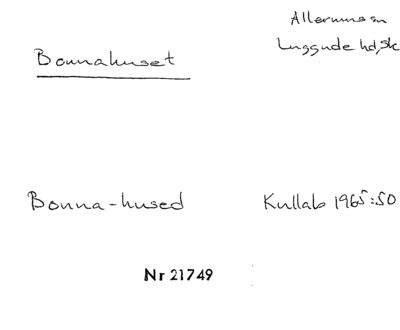 Bonnahuset
Allerums sn
Luggude hd, Sk
Bonna-hused
Kullab 1965:50
Nr 21749